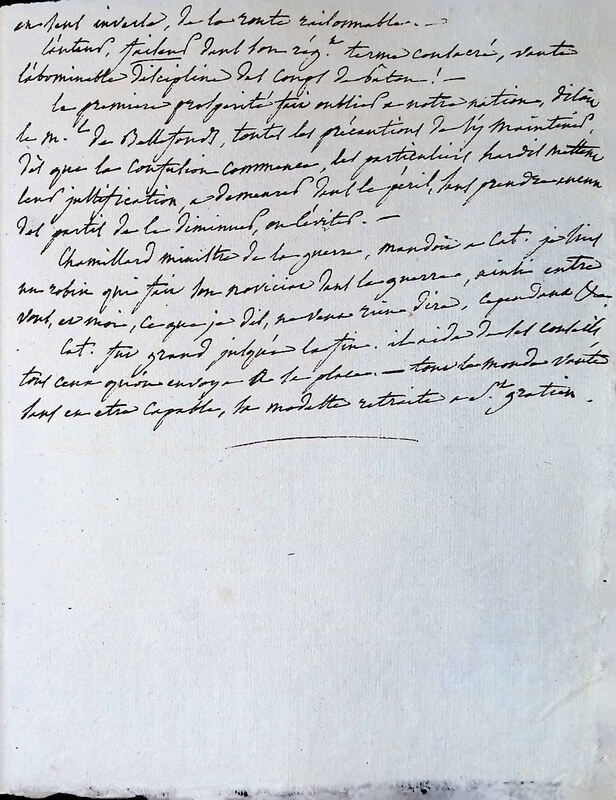 en sens inverse, de la route raisonnable. —
L'auteur, faisant dans son rég.t terme consacré, vante
l'abominable discipline des coups de bâton! —
la premiere prosperité fait oublier a notre nation, disoit
le m.al de Bellefonds, toutes les précautions de s'y maintenir,
dès que la confusion commence, les particuliers hardis mettent
leur justification, a demeurer dans le péril, sans prendre aucun
des partis de le diminuer, ou l'éviter. —
Chamillard ministre de la guerre, mandoit a Cat. je suis
un robin qui fait son noviciat dans la guerre, ainsi entre
vous, et moi, ce que je dis, ne veut rien dire, cependant &a.
Cat. fut grand jusqu'a la fin. il aida de ses conseils
tous ceux qu'on envoya a sa place. — tout le monde vante
sans en etre capable, sa modeste retraite a S.t gratien.